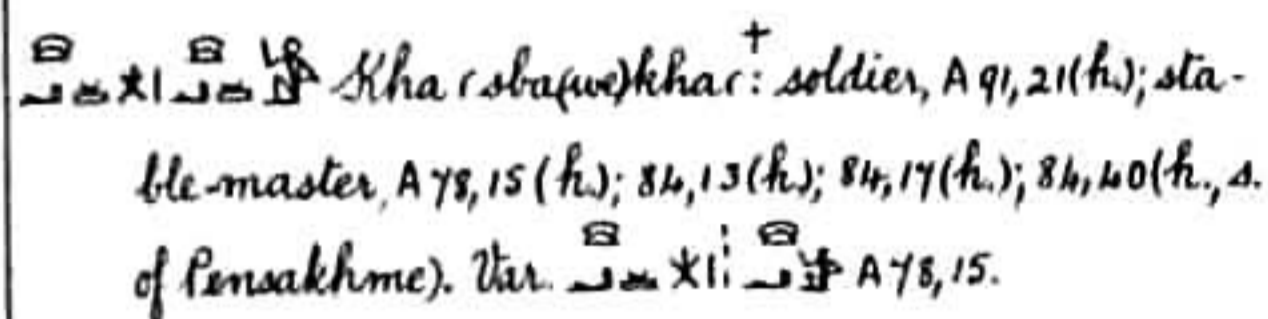 𓈍𓂝𓏛𓇼𓏤𓈍𓂝𓏛 Khaʿsba(we)khaʿ:† soldier, A 91,21(h.); sta-
ble-master, A 78,15(h.); 84,13(h.); 84,17(h.); 84,40(h., s.
of Pensakhme). Var. 𓈍𓂝𓏛𓇼𓏤𓏥𓈍𓂝 A 78,15.